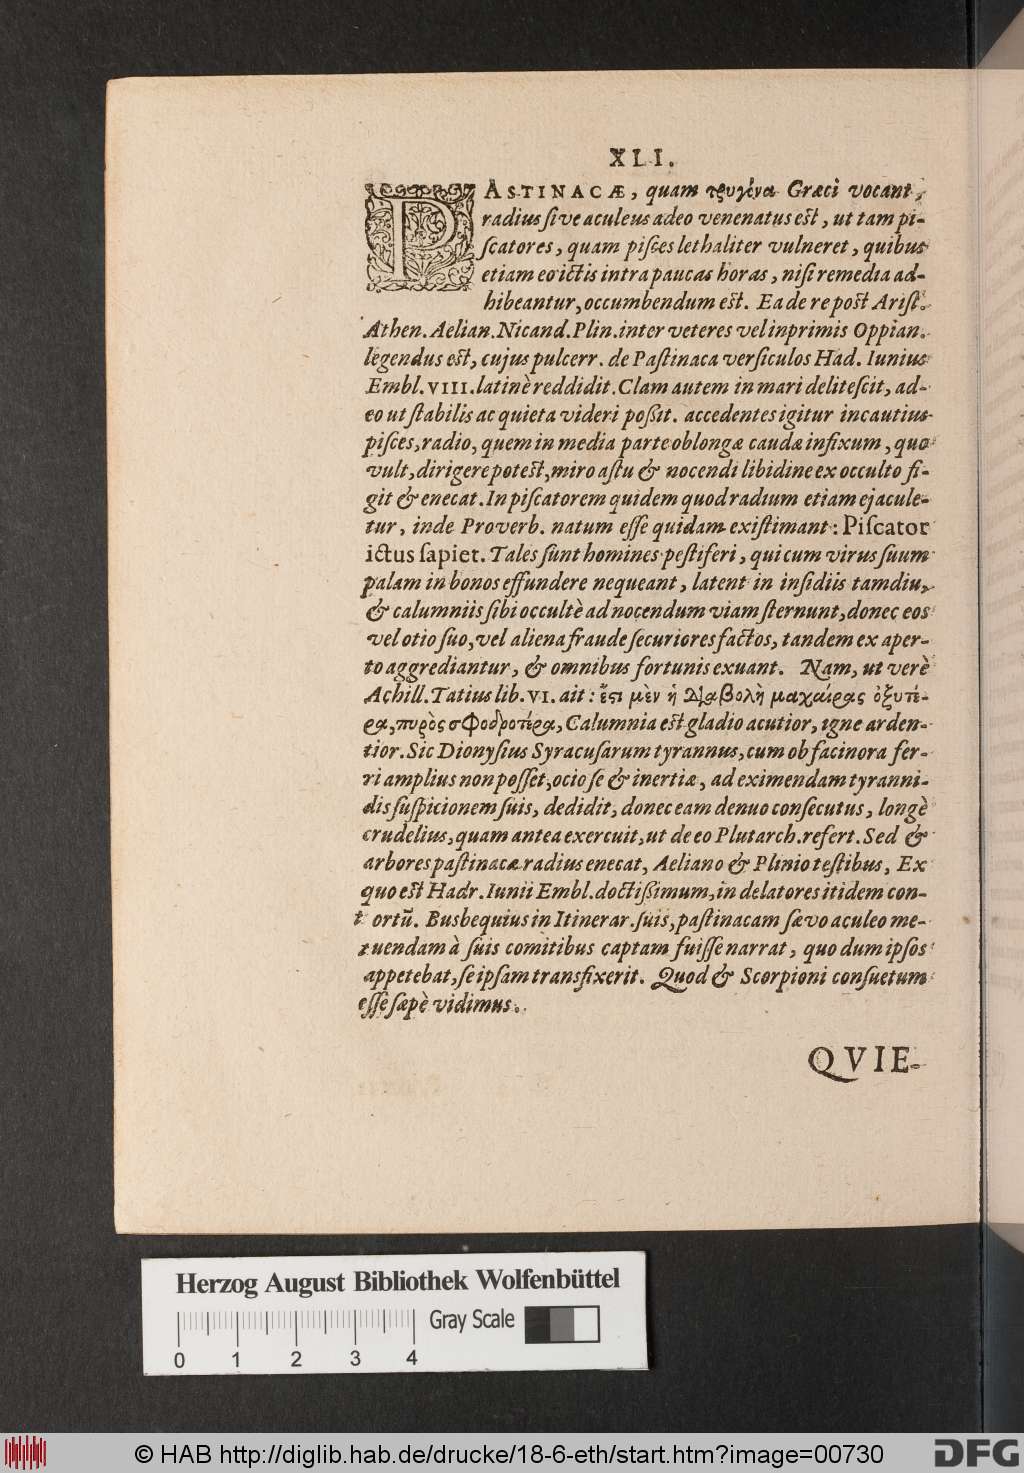 XLI.
PASTINACÆ, quam τρυγένα Græci vocant,
radius sive aculeus adeo venenatus est, ut tam pi-
scatores, quam pisces lethaliter vulneret, quibus
etiam eo ictis intra paucas horas, nisi remedia ad-
hibeantur, occumbendum est. Ea de re post Arist.
Athen. Aelian. Nicand. Plin. inter veteres vel inprimis Oppian.
legendus est, cujus pulcerr. de Pastinaca versiculos Had. Iunius
Embl. VIII. latinè reddidit. Clam autem in mari delitescit, ad-
eo ut stabilis ac quieta videri possit. accedentes igitur incautius
pisces, radio, quem in media parte oblongæ caudæ infixum, quo
vult, dirigere potest, miro astu & nocendi libidine ex occulto fi-
git & enecat. In piscatorem quidem quod radium etiam ejacule-
tur, inde Proverb. natum esse quidam existimant: Piscator
ictus sapiet. Tales sunt homines pestiferi, qui cum virus suum
palam in bonos effundere nequeant, latent in insidiis tamdiu,
& calumniis sibi occultè ad nocendum viam sternunt, donec eos
vel otio suo, vel aliena fraude securiores factos, tandem ex aper-
to aggrediantur, & omnibus fortunis exuant. Nam, ut verè
Achill. Tatius lib. VI. ait: ἔστι μὲν ἡ διαβολὴ μαχαίρας ὀξυτέ-
ρα, πυρὸς σφοδροτέρα, Calumnia est gladio acutior, igne arden-
tior. Sic Dionysius Syracusarum tyrannus, cum ob facinora fer-
ri amplius non posset, ocio se & inertiæ, ad eximendam tyranni-
dis suspicionem suis, dedidit, donec eam denuo consecutus, longè
crudelius, quam antea exercuit, ut de eo Plutarch. refert. Sed &
arbores pastinacæ radius enecat, Aeliano & Plinio testibus, Ex
quo est Hadr. Iunii Embl. doctissimum, in delatores itidem con-
tortū. Busbequius in Itinerar. suis, pastinacam sævo aculeo me-
tuendam à suis comitibus captam fuisse narrat, quo dum ipsos
appetebat, se ipsam transfixerit. Quod & Scorpioni consuetum
esse sæpè vidimus.
QVIE-
Herzog August Bibliothek Wolfenbüttel
Gray Scale
0 1 2 3 4
© HAB http://diglib.hab.de/drucke/18-6-eth/start.htm?image=00730
DFG